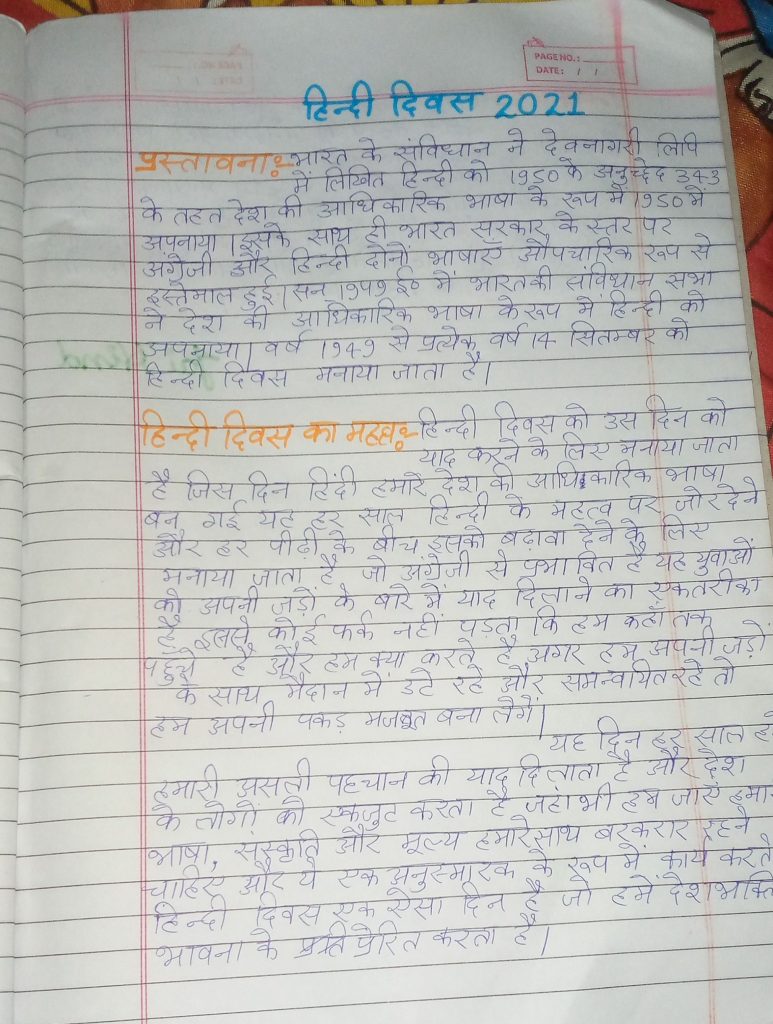 PAGE NO.:
DATE: / /
हिन्दी दिवस 2021
प्रस्तावना:- भारत के संविधान ने देवनागरी लिपि
में लिखित हिन्दी को 1950 के अनुच्छेद 343
के तहत देश की आधिकारिक भाषा के रूप में 1950 में
अपनाया। इसके साथ ही भारत सरकार के स्तर पर
अंग्रेजी और हिन्दी दोनों भाषाएं औपचारिक रूप से
इस्तेमाल हुई। सन 1949 ई० में भारत की संविधान सभा
ने देश की आधिकारिक भाषा के रूप में हिन्दी को
अपनाया। वर्ष 1949 से प्रत्येक वर्ष 14 सितम्बर को
हिन्दी दिवस मनाया जाता है।
हिन्दी दिवस का महत्व:- हिन्दी दिवस को उस दिन को
याद करने के लिए मनाया जाता
है जिस दिन हिंदी हमारे देश की आधिकारिक भाषा
बन गई यह हर साल हिन्दी के महत्व पर जोर देने
और हर पीढ़ी के बीच इसको बढ़ावा देने के लिए
मनाया जाता है जो अंग्रेजी से प्रभावित है यह युवाओं
को अपनी जड़ों के बारे में याद दिलाने का एक तरीका
है इससे कोई फर्क नहीं पड़ता कि हम कहाँ तक
पहुंचे है और हम क्या करते है अगर हम अपनी जड़ों
के साथ मैदान में डटे रहे और समन्वयित रहे तो
हम अपनी पकड़ मजबूत बना लेगें।
यह दिन हर साल
हमारी असली पहचान की याद दिलाता है और देश
के लोगों को एकजुट करता है जहां भी हम जाएं
भाषा, संस्कृति और मूल्य हमारे साथ बरकरार रहने
चाहिए और ये एक अनुस्मारक के रूप में कार्य करते
हिन्दी दिवस एक ऐसा दिन है जो हमें देशभक्ति
भावना के प्रति प्रेरित करता है।